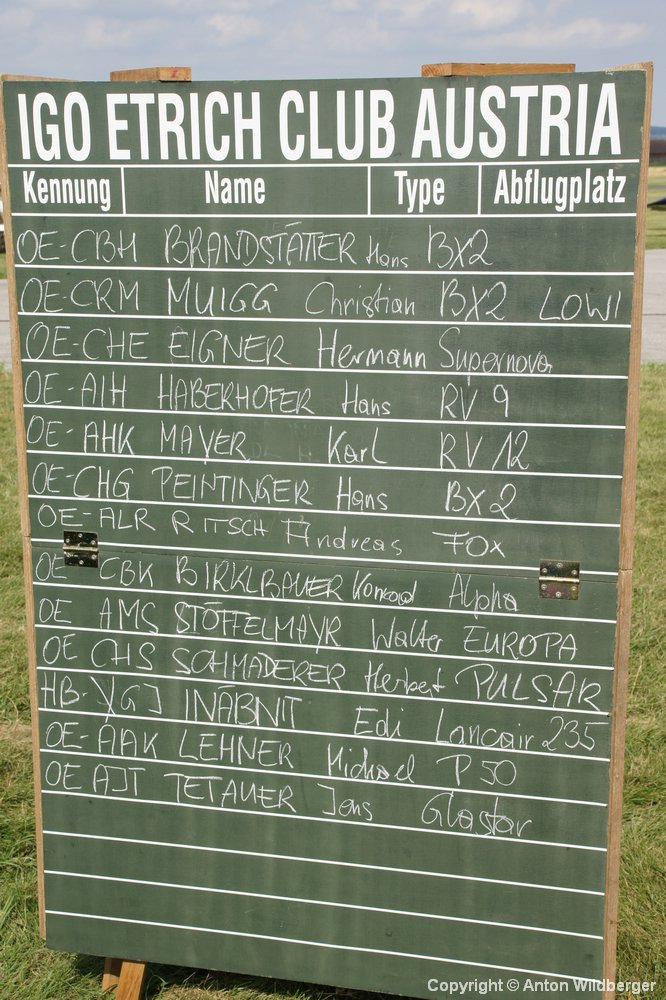 IGO ETRICH CLUB AUSTRIA
Kennung Name Type Abflugplatz
OE-CBH BRANDSTÄTTER Hans BX2
OE-CRM MUIGG Christian BX2 LOWI
OE-CHE EIGNER Hermann Supernova
OE-AIH HABERHOFER Hans RV 9
OE-AHK MAYER Karl RV 12
OE-CHG PEINTINGER Hans BX2
OE-ALR RITSCH Andreas FOX
OE CBK BIRKLBAUER Konrad Alpha
OE AMS STÖFFELMAYR Walter EUROPA
OE CHS SCHMADERER Herbert PULSAR
INÄBNIT Edi Lancair 235
OE-AAK LEHNER Michael P50
OE AJT TETAUER Jens Glastar
Copyright © Anton Wildberger